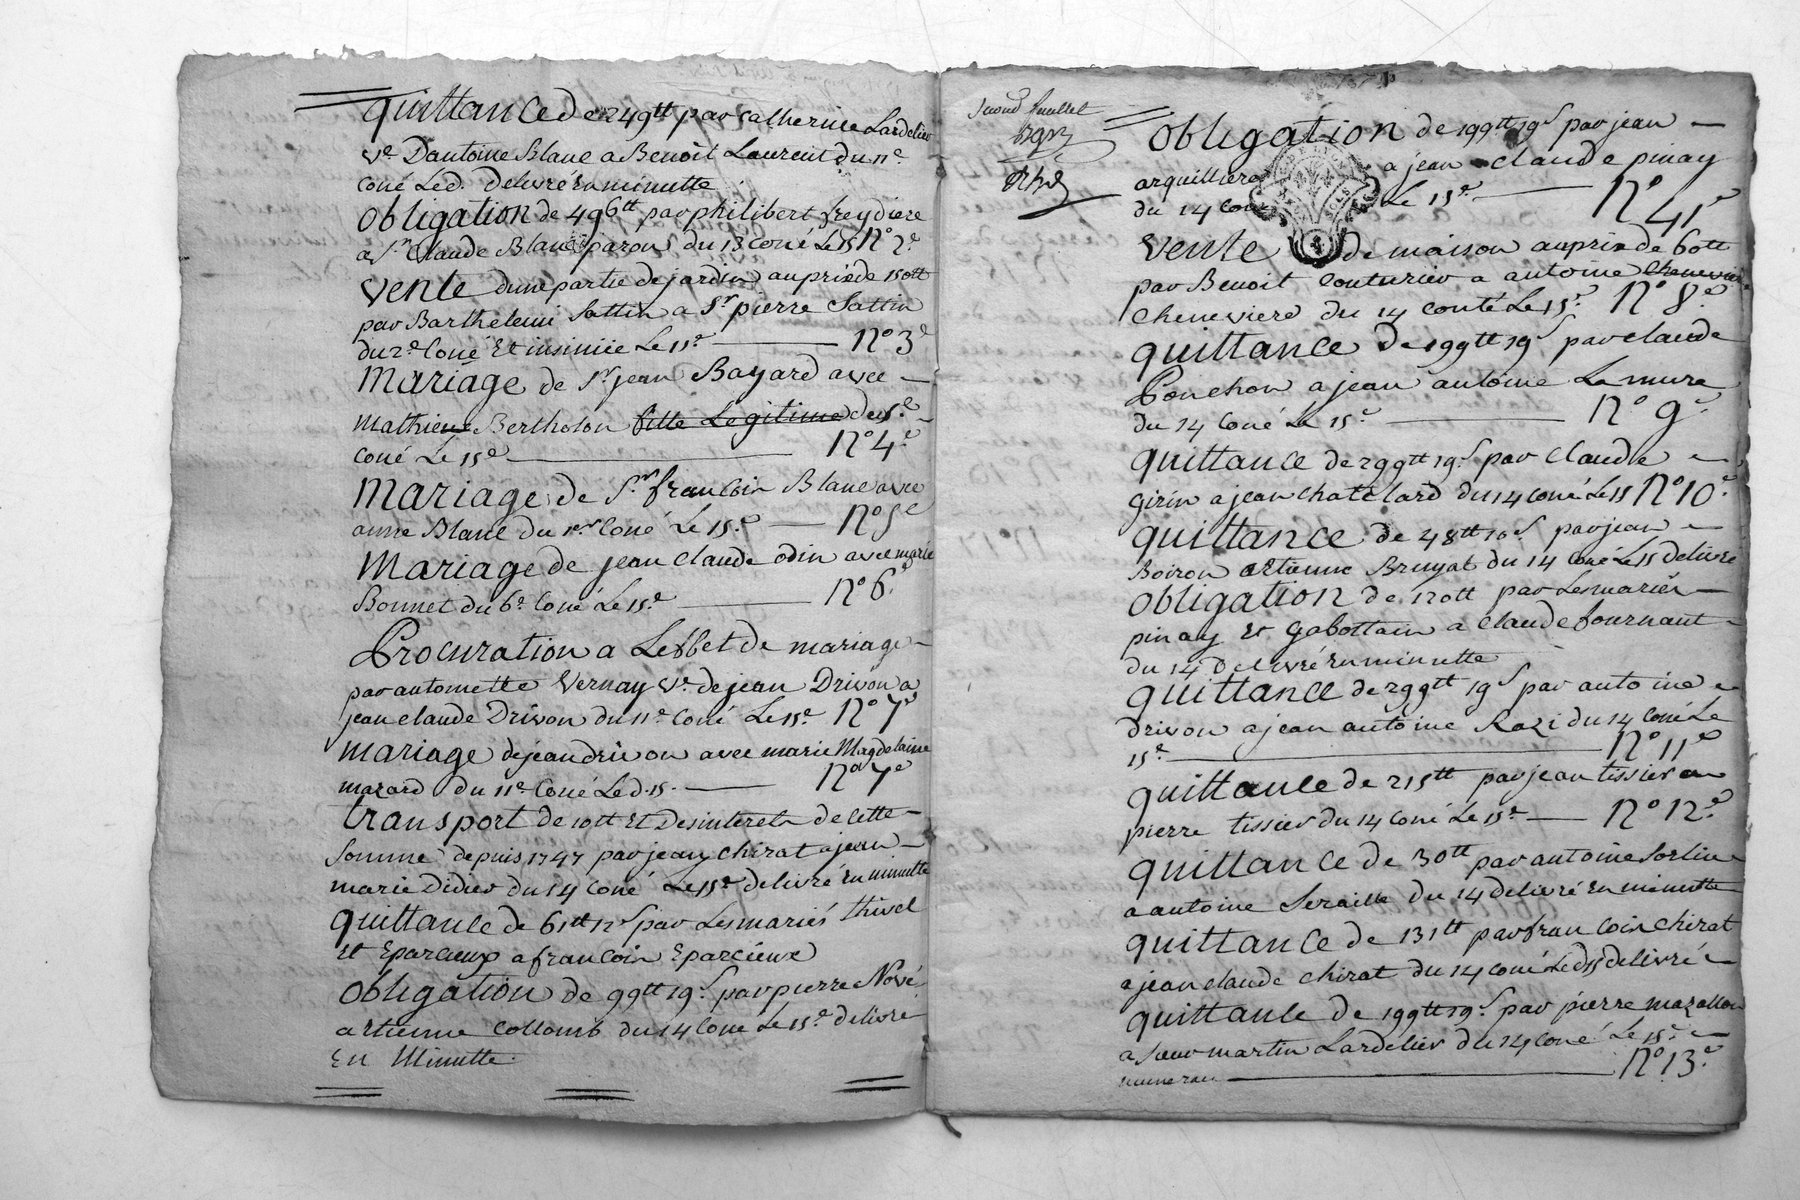 quittance de 249tt par Catherine Lardelier
ve. D'antoine Blanc a Benoit Laurent du 11e.
coné Led. delivré en minutte
obligation de 496tt par philibert freydiere
a Sr Claude Blanc paron du 13 coné Le 15 N° 2e
vente dune partie de jardin au prix de 150tt
par Barthelemi Sattin a Sr pierre Sattin
du 2e. Coné Et insinüé Le 15e N° 3e
Mariage de Sr jean Bayard avec
Mathieue Bertholon fille Legitime du 5e.
coné Le 15e N° 4e
Mariage de Sr. francois Blanc avec
anne Blanc du 1er Coné Le 15e N° 5e
Mariage de jean Claude odin avec marie
Bonnet du 6e. Coné Le 15e. N° 6e
Procuration a Leffet de mariage
par antoinette Vernay ve. de jean Drivon a
jean claude Drivon du 11e. Coné Le 15e N° 7e
mariage de jean drivon avec marie Magdelaine
mazard du 11e. Coné Led. 15. N° 7e
transport de 10tt Et Desinterets de cette
Somme depuis 1747 par jean Chirat a jean
marie Didier du 14 Coné Le 15e delivré En minutte
quittance de 61tt 12s par Les mariés thivel
Et Eparcieux a francois Eparcieux
obligation de 99tt 19s. par pierre Nové
a Etienne Collomb du 14 Coné Le 15e. delivré
En Minutte.
Second feuillet
obligation de 199tt 19s par jean
arquilliere a jean claude pinay
du 14 Coné Le 15e N° 41e
vente de maison au prix de 60tt
par Benoit Couturier a antoine Chenevier
Cheneviere du 14 conté Le 15e. N° 8e
quittance De 199tt 19s par claude
Ponchon a jean antoine La mure
du 14 Coné Le 15e N° 9e
quittance de 299tt 19s. par Claude
girin a jean chatelard du 14 coné Le 15 N° 10e
quittance de 48tt 10s par jean
Boiron a Etienne Bruyat du 14 Coné Le 15 delivré
obligation de 120tt par Les mariés
pinay Et gabottain a Claude fournant
du 14 Delivré En minutte
quittance de 299tt 19s par antoine
drivon a jean antoine Razi du 14 Coné Le
15e N° 11e
quittance de 215tt par jean tissier a
pierre tissier du 14 Coné Le 15e N° 12e
quittance de 30tt par antoine Sorlin
a antoine Seraille du 14 delivré En minutte
quittance de 131tt par francois Chirat
a jean claude Chirat du 14 coné Led 15 delivré
quittance de 199tt 19s. par pierre mazallon
a Sieur martin Lardelier du 14 Coné Le 15e
N° 13e